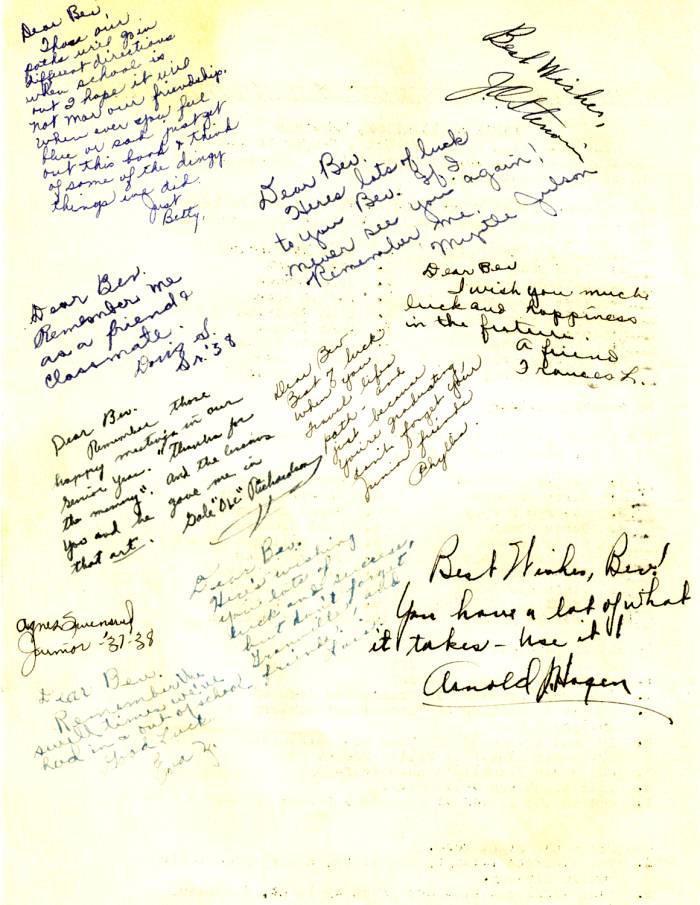 Dear Bev
Those our
paths will go in
different directions
when school is
out I hope it will
not mar our friendship.
When ever you feel
blue or sad just get
out this book & think
of some of the dingy
things we did.
Just
Betty.
Best Wishes,
Dear Bev.
Heres lots of luck
to you Bev. If I
never see you again!
Remember me.
Myrtle Julson
Dear Bev.
Remember me
as a friend &
classmate.
Doug S.
Sr. '38
Dear Bev
I wish you much
luck and happiness
in the future.
A friend
Frances L.
Dear Bev.
Best of luck
when you
travel lifes
path and
just because
you're graduating
don't forget your
junior friends
Phyllis.
Dear Bev.
Remember those
happy meetings in our
Senior year. "Thanks for
the memory". And the lessons
you and he gave me in
that art. Gale "Ole" Richardson
Dear Bev.
Here's wishing
you lots of
luck and success,
but don't forget
Granville, and
friends.
Best Wishes, Bev!
You have a lot of what
it takes - Use it!
Arnold J. Hagen
Agnes
Junior '37-38
Dear Bev.
Remember the
swell times we've
had in & out of school
Good Luck